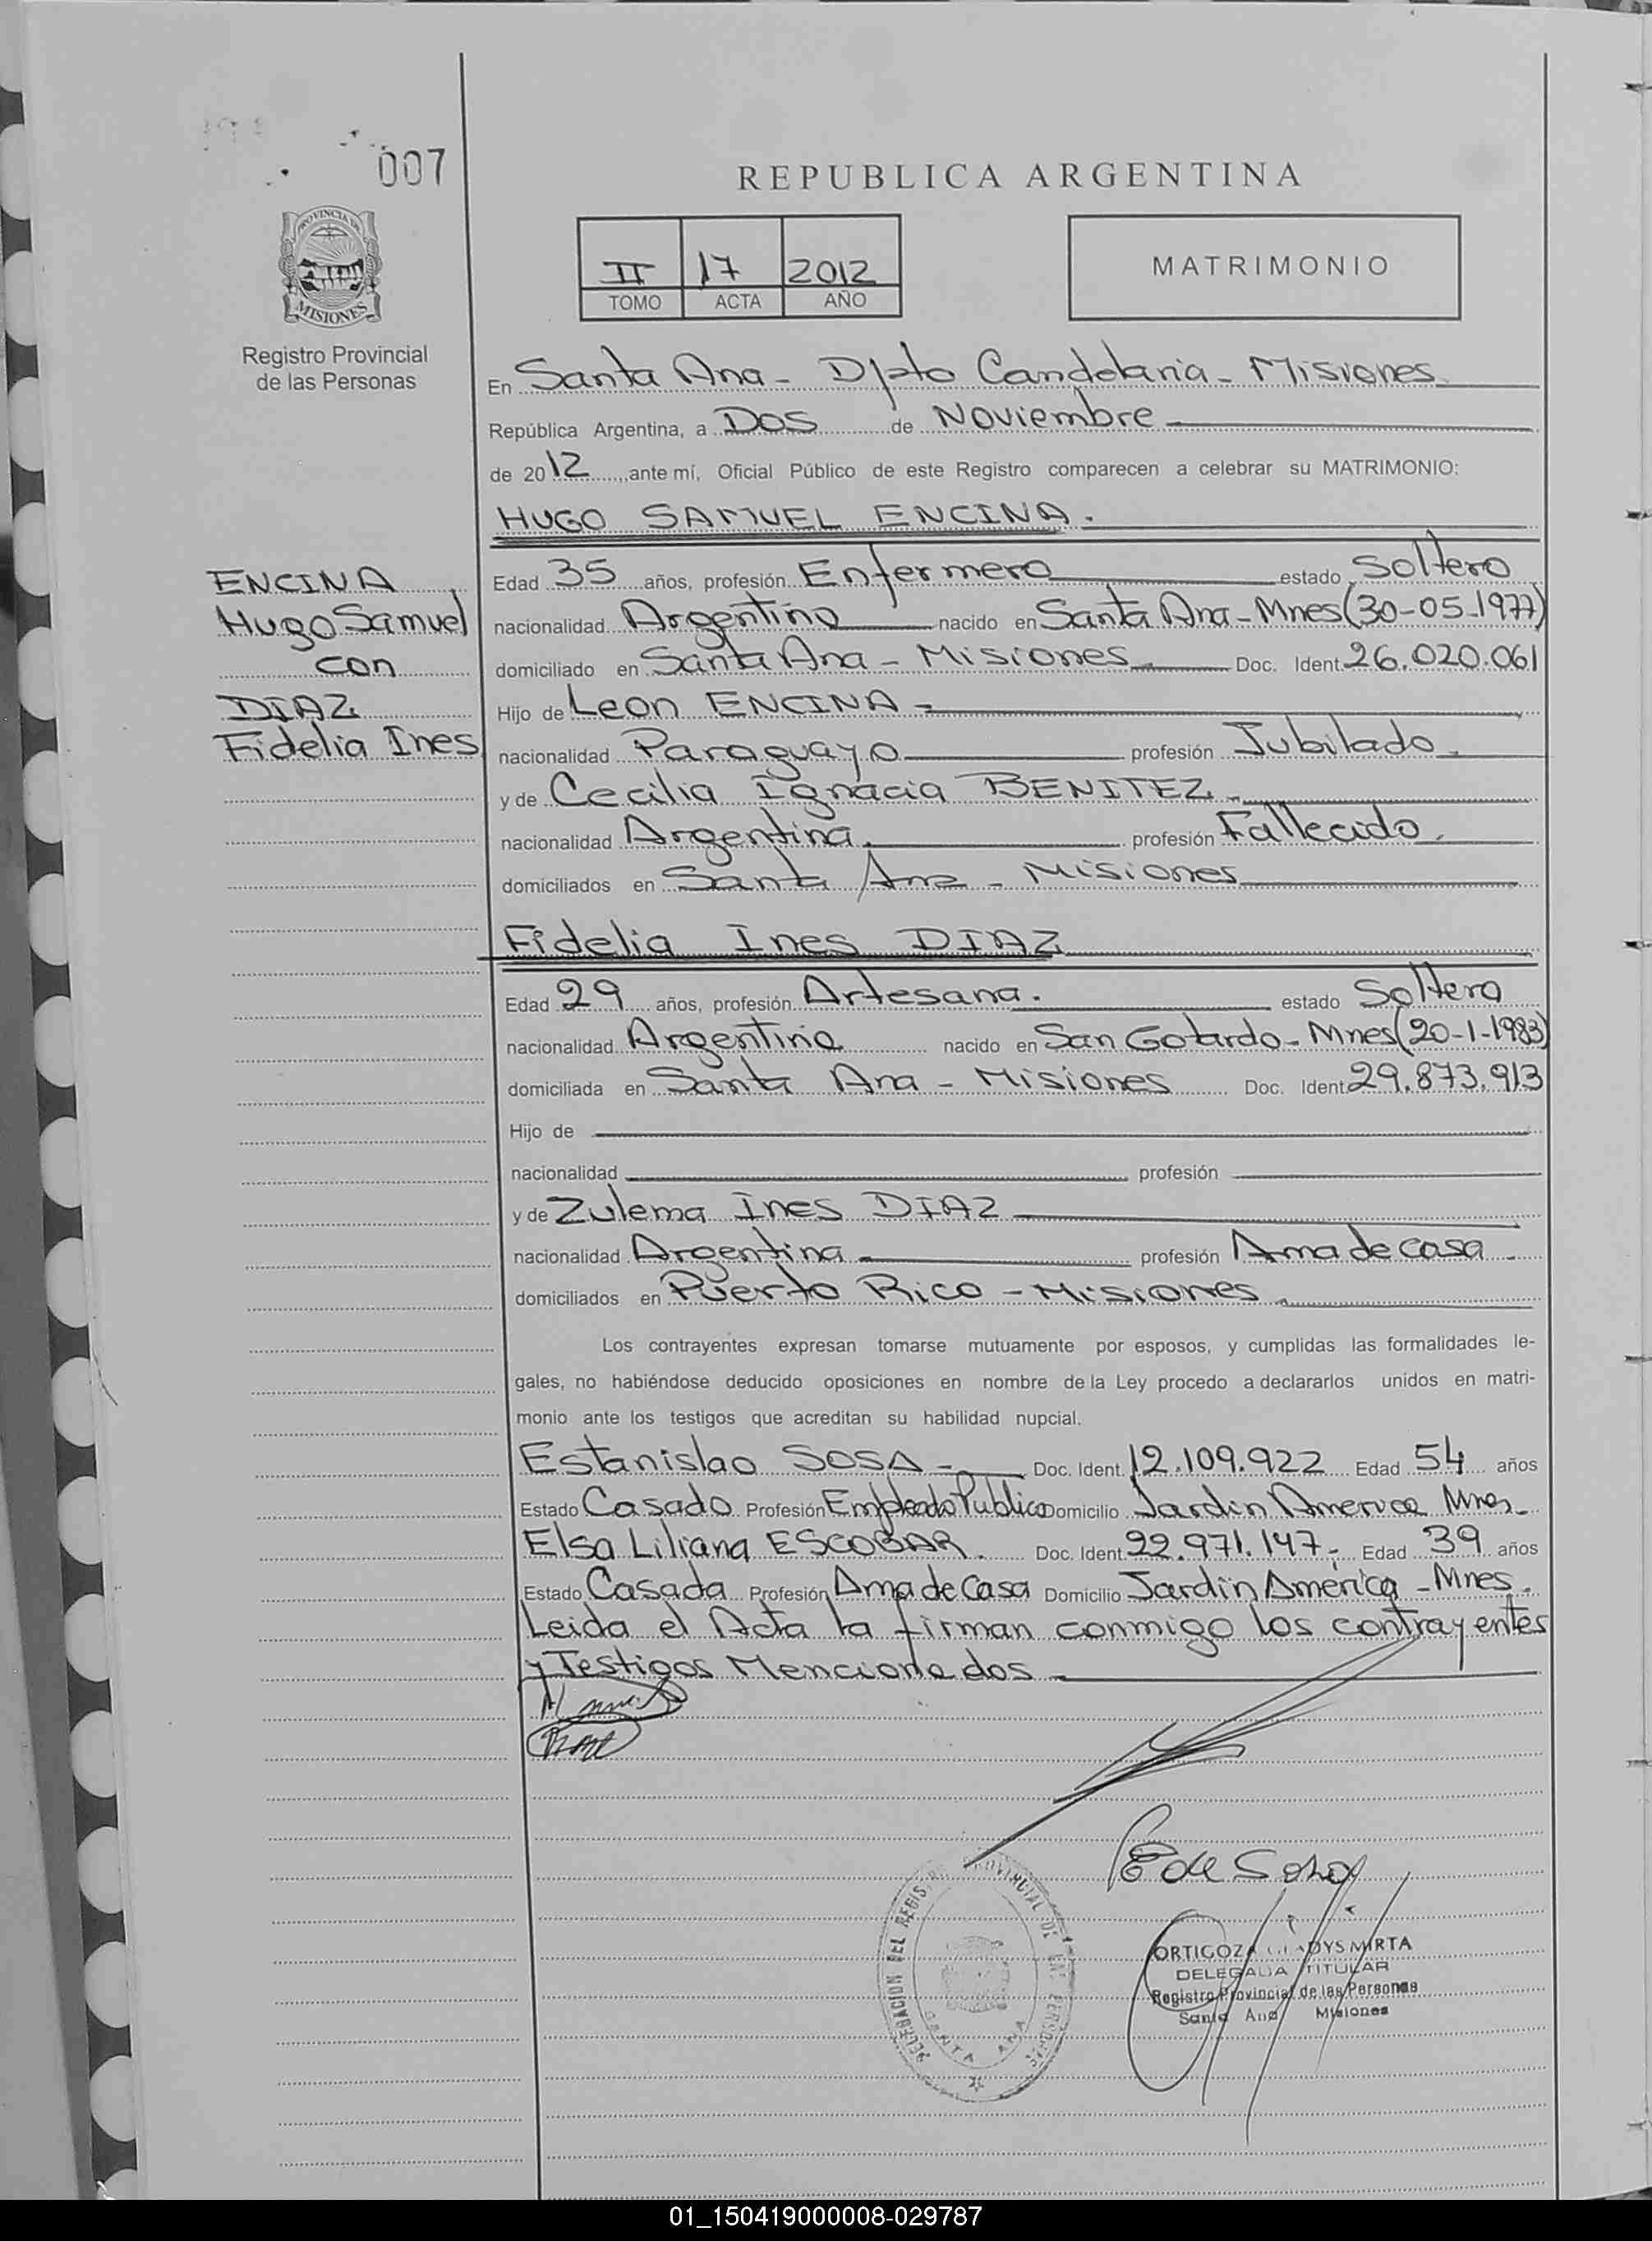 007
REPUBLICA ARGENTINA
PROVINCIA DE
MISIONES
Registro Provincial
de las Personas
II 17 2012
TOMO ACTA AÑO
MATRIMONIO
En Santa Ana - Dpto Candelaria - Misiones
República Argentina, a Dos de Noviembre
de 2012 ante mí, Oficial Público de este Registro comparecen a celebrar su MATRIMONIO:
HUGO SAMUEL ENCINA.
ENCINA
Hugo Samuel
con
DIAZ
Fidelia Ines
Edad 35 años, profesión Enfermero estado Soltero
nacionalidad Argentino nacido en Santa Ana - Mnes (30-05-1977)
domiciliado en Santa Ana - Misiones Doc. Ident. 26.020.061
Hijo de Leon ENCINA -
nacionalidad Paraguayo profesión Jubilado.
y de Cecilia Ignacia BENITEZ -
nacionalidad Argentina. profesión Fallecido.
domiciliados en Santa Ana - Misiones
Fidelia Ines DIAZ
Edad 29 años, profesión Artesana. estado Soltera
nacionalidad Argentina nacido en San Gotardo - Mnes (20-1-1983)
domiciliada en Santa Ana - Misiones Doc. Ident. 29.873.913
Hijo de
nacionalidad profesión
y de Zulema Ines DIAZ
nacionalidad Argentina profesión Ama de casa
domiciliados en Puerto Rico - Misiones
Los contrayentes expresan tomarse mutuamente por esposos, y cumplidas las formalidades le-
gales, no habiéndose deducido oposiciones en nombre de la Ley procedo a declararlos unidos en matri-
monio ante los testigos que acreditan su habilidad nupcial.
Estanislao SOSA - Doc. Ident. 12.109.922 Edad 54 años
Estado Casado Profesión Empleado Publico Domicilio Jardin America Mnes
Elsa Liliana ESCOBAR. Doc. Ident. 22.971.147 - Edad 39 años
Estado Casada Profesión Ama de Casa Domicilio Jardin América - Mnes.
Leida el Acta la firman conmigo los contrayentes
y Testigos Mencionados
E de Sosa
DELEGACION DEL REGISTRO PROVINCIAL DE LAS PERSONAS
SANTA ANA
ORTIGOZA GLADYS MIRTA
DELEGADA TITULAR
Registro Provincial de las Personas
Santa Ana Misiones
01_150419000008-029787